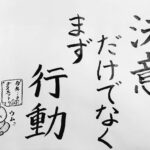 決意
だけでなく
まず
行動